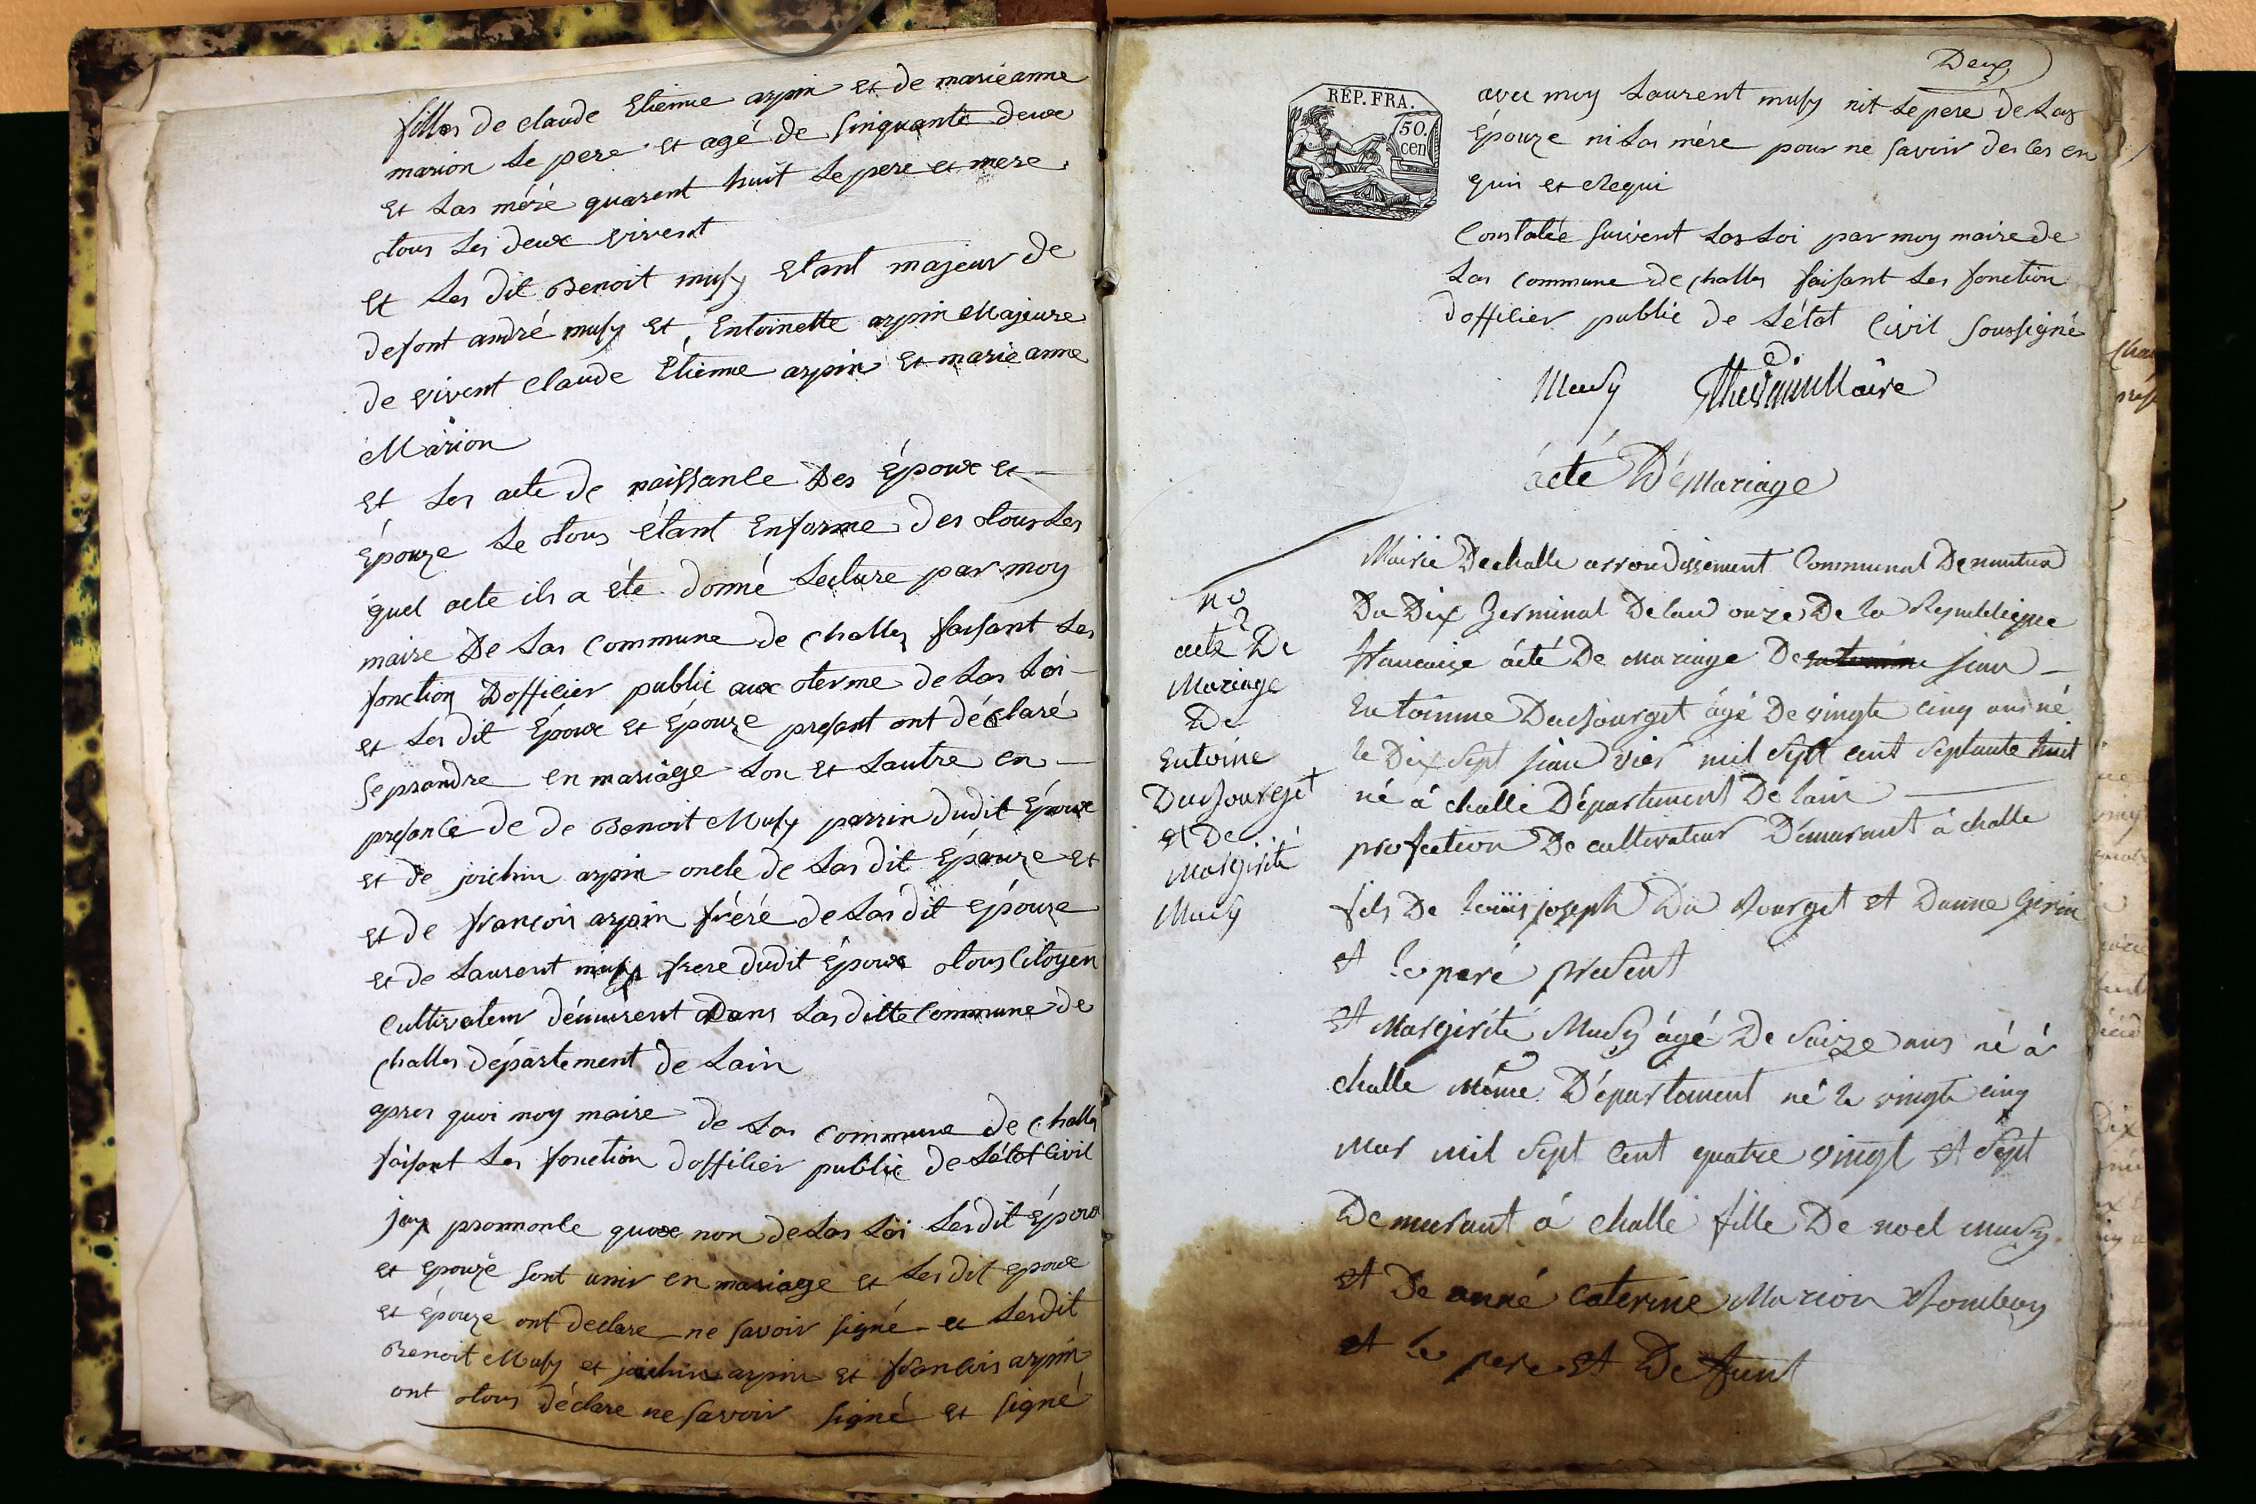 filles de claude Etienne arpin et de marieanne
marion Le pere et agé de sinquante deux
et Las mére quarent huit Le pere et mere
tous Les deux vivent
et Les dit Benoit musy etant majeur de
defont andré musy et Entoinette arpin Majeure
de vivent claude Etienne arpin et marieanne
Marion
et Les acte de naissance Des époux et
épouze Le tous étant Enforme des tous Les
quel acte ils a éte donné Lecture par moy
maire De Las Commune de challes faisant Les
fonction Dofficier public aux terme de Las Loi
et Les dit époux et épouze presant ont déclaré
se prandre en mariâge Lon et Lautre en
presance de de Benoit Musy parrin dudit époux
et de joichin arpin oncle de Las dit épouze et
et de françois arpin fréré de Las dit épouze
et de Laurent musy frere dudit époux tous Citoyen
Cultivateur démurent Dans Las ditte Commune de
challes département de Lain
apres quoi moy maire de Las Commune de challes
faisant Les fonction dofficier public de Létat Civil
jay prononce quaux non de Las Loi Lesdit époux
et épouze sont unir en mariage et Lesdit epoux
et épouze ont declare ne savoir signé et Lesdit
Benoit Musy et joichin arpin et francois arpin
ont tous déclare ne savoir signé et signé
Deux
REP. FRA.
50.
cen
avec moy Laurent musy nit Le pere de Las
épouze ni Las mére pour ne savoir des ces en
quis et Requi
Constatée suivent Las Loi par moy maire de
Las Commune de challes faisant Les fonction
dofficier public de Létat Civil soussigné
Musy Maire
acté Dé Mariage
Mairie De challe arrondissement Communal De nantua
Du Dix Germinal De lan onze De la Republieque
francaise acté De mariage De jean
Entoinne Dubourget âgé De vingte cinq ans né
le Dix sept jean vier mil sept cent septante huit
né à challe Département De lain
profection De cultivateur Démurant à challe
fils De louis joseph Du bourget et Danne Girin
et le peré present
et Margirite Musy âgé De saize ans né à
challe même Département né le vingte cinq
mar mil sept cent quatre vingt et sept
De murant à challe fille De noel musy
et De anné Caterine Marion
et le pere et De funt
no
2
acte De
Mariage
De
Entoine
Dubourget
et De
Margirite
Musy